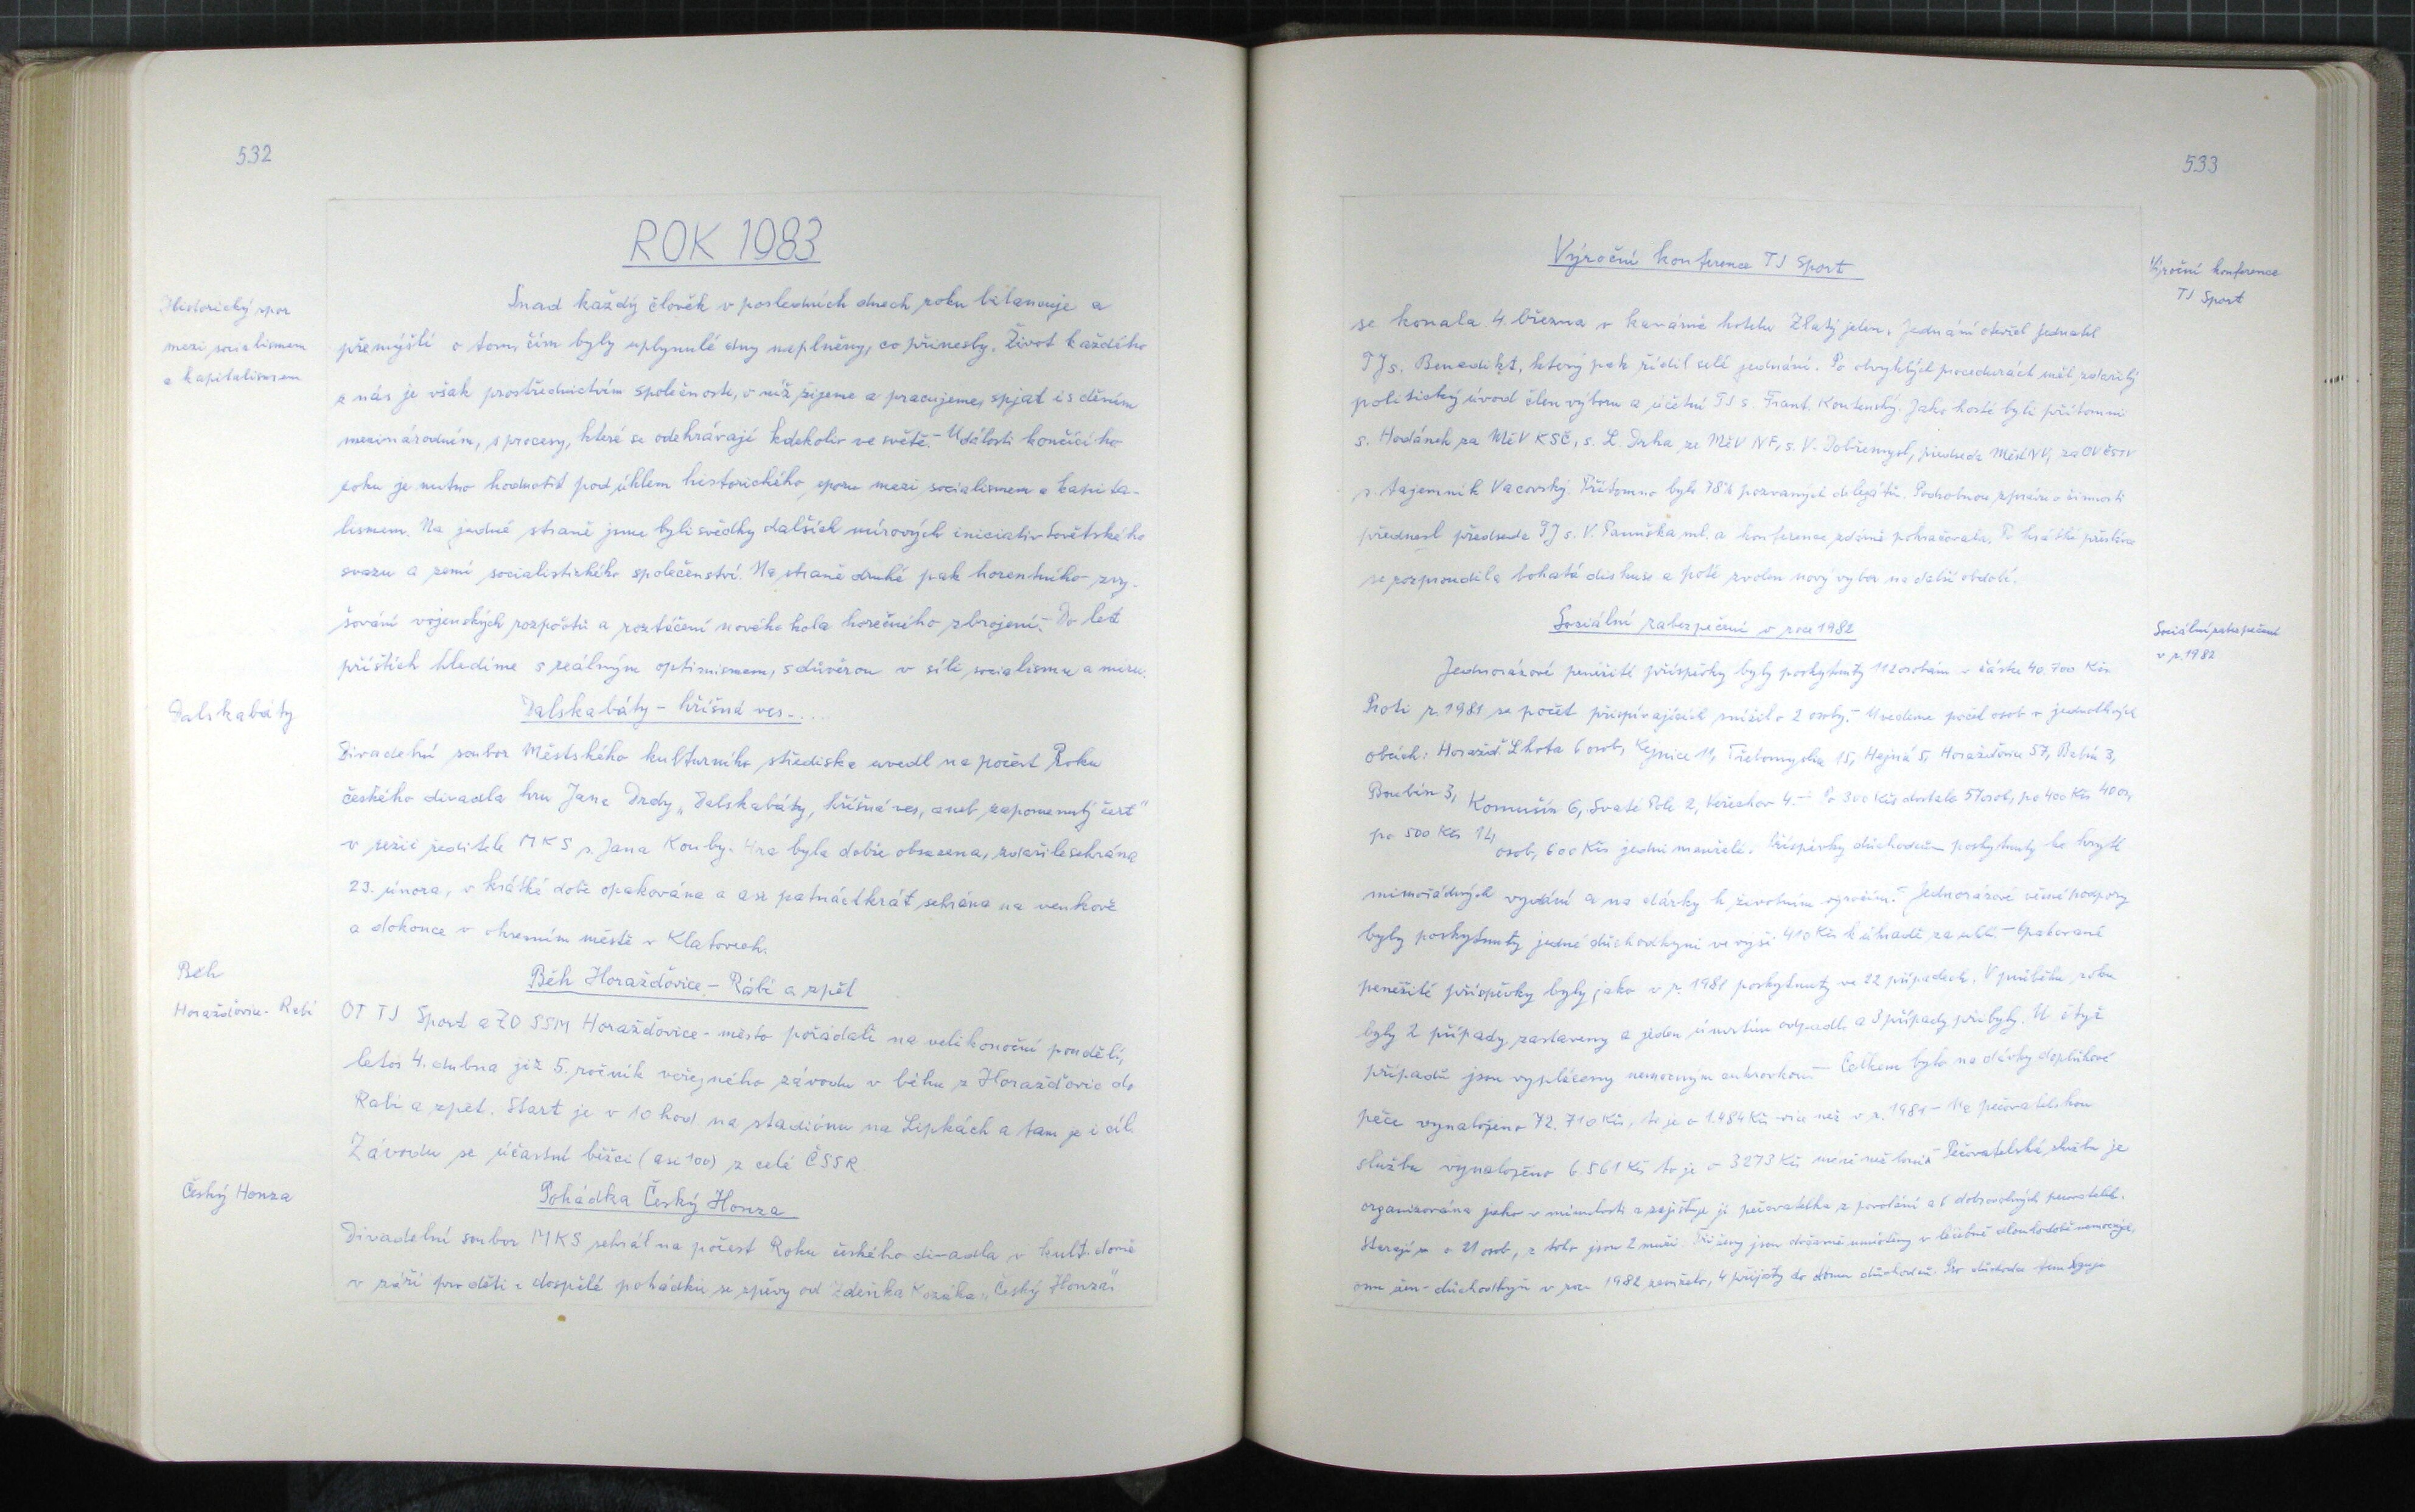 532
ROK 1983
Historický spor
mezi socialismem
a kapitalismem
Snad každý člověk v posledních dnech roku bilancuje a
přemýšlí o tom, čím byly uplynulé dny naplněny, co přinesly. Život každého
z nás je však prostřednictvím společnosti, v níž žijeme a pracujeme, spjat i s děním
mezinárodním, s procesy, které se odehrávají kdekoliv ve světě.- Události končícího
roku je nutno hodnotit pod úhlem historického sporu mezi socialismem a kapita-
lismem. Na jedné straně jsme byli svědky dalších mírových iniciativ Sovětského
svazu a zemí socialistického společenství. Na straně druhé pak horentního zvy-
šování vojenských rozpočtů a roztáčení nového kola horečného zbrojení.- Do let
příštích hledíme s reálným optimismem, s důvěrou v síli socialismu a míru.
Dalskabáty
Dalskabáty - hříšná ves....
Divadelní soubor Městského kulturního střediska uvedl na počest Roku
českého divadla hru Jana Drdy „Dalskabáty, hříšná ves, aneb zapomenutý čert"
v režii ředitele MKS s. Jana Kouby. Hra byla dobře obsazena, zdařile sehrána
23. února, v krátké době opakována a asi patnáctkrát sehrána na venkově
a dokonce v okresním městě v Klatovech.
Běh
Horažďovice - Rabí
Běh Horažďovice - Rábí a zpět
OT TJ Sport a ZO SSM Horažďovice - město pořádali na velikonoční pondělí,
letos 4. dubna již 5. ročník veřejného závodu v běhu z Horažďovic do
Rabí a zpět. Start je v 10 hod na stadiónu na Lipkách a tam je i cíl.
Závodu se účastní běžci (asi 100) z celé ČSSR.
Český Honza
Pohádka Český Honza
Divadelní soubor MKS sehrál na počest Roku českého divadla v kult. domě
v září pro děti i dospělé pohádku se zpěvy od Zdeňka Kozáka „Český Honza".
533
Výroční konference TJ Sport
Výroční konference
TJ Sport
se konala 4. března v kavárně hotelu Zlatý jelen. Jednání otevřel jednatel
TJ s. Benedikt, který pak řídil celé jednání. Po obvyklých procedurách měl zdařilý
politický úvod člen výboru a účetní TJ s. Frant. Koutenský. Jako hosté byli přítomni
s. Hodánek za MěV KSČ, s. L. Duha ze MěV NF, s. V. Dobřemysl, předseda MěstNV, za OV ČSTV
s. tajemník Vacovský. Přítomno bylo 78% pozvaných delegátů. Podrobnou zprávu o činnosti
přednesl předseda TJ s. V. Panuška ml. a konference zdárně pokračovala. Po krátké přestávce
se rozproudila bohatá diskuse a poté zvolen nový výbor na další období.
Sociální zabezpečení v roce 1982
Sociální zabezpečení
v r. 1982
Jednorázové peněžité příspěvky byly poskytnuty 112 osobám v částce 40.700 Kčs.
Proti r. 1981 se počet přispívajících snížil o 2 osoby.- Uvedeme počet osob v jednotlivých
obcích: Horažď. Lhota 6 osob, Kejnice 11, Třebomyslice 15, Hejná 5, Horažďovice 57, Babín 3,
Boubín 3, Komušín 6, Svaté Pole 2, Veřechov 4.- Po 300 Kčs dostalo 57 osob, po 400 Kčs 40 os,
po 500 Kčs 14 osob, 600 Kčs jedni manželé. Příspěvky důchodcům poskytnuty ke krytí
mimořádných vydání a na dárky k životním výročím.- Jednorázové věcné podpory
byly poskytnuty jedné důchodkyni ve výši 410 Kčs k úhradě za uhlí.- Opakované
peněžité příspěvky byly jako v r. 1981 poskytnuty ve 22 případech. V průběhu roku
byly 2 případy zastaveny a jeden úmrtím odpadl, a 3 případy přibyly. U čtyř
případů jsou vypláceny nemocným cukrovkou.- Celkem bylo na dávky doplňkové
péče vynaloženo 72.710 Kčs, to je o 1.484 Kčs více než v r. 1981 - Na pečovatelskou
službu vynaloženo 6.561 Kčs to je o 3273 Kčs méně než loni.- Pečovatelská služba je
organizována jako v minulosti a zajišťuje ji pečovatelka z povolání a 6 dobrovolných pečovatelek.
Starají se o 21 osob, z toho jsou 2 muži. Tři ženy jsou dočasně umístěny v léčebně dlouhodobě nemocných,
osm žen - důchodkyň v roce 1982 zemřelo, 4 přijaty do domu důchodců. Pro důchodce